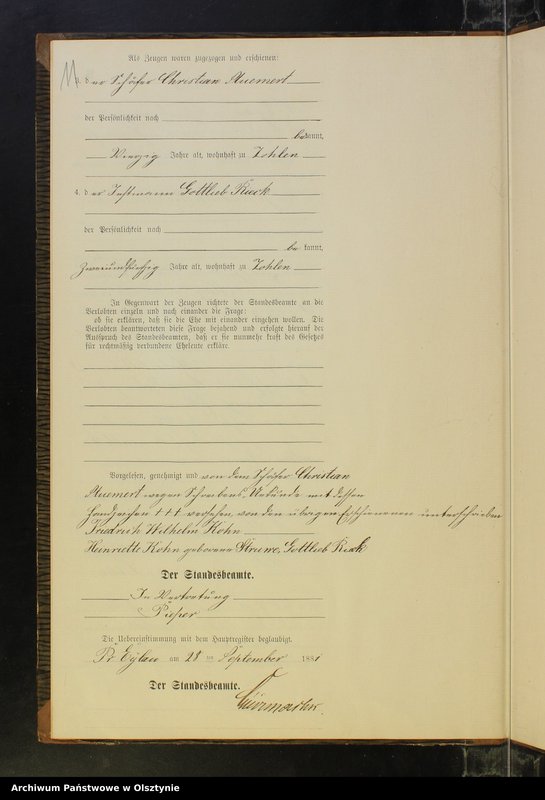 Als Zeugen waren zugezogen und erschienen:
3. der Schäfer Christian
der Persönlichkeit nach
bekannt,
Vierzig Jahre alt, wohnhaft zu Zohlen
4. der Instmann Gottlieb Rieck
der Persönlichkeit nach
bekannt,
Zweiundfünfzig Jahre alt, wohnhaft zu Zohlen
In Gegenwart der Zeugen richtete der Standesbeamte an die
Verlobten einzeln und nach einander die Frage:
ob sie erklären, daß sie die Ehe mit einander eingehen wollen. Die
Verlobten beantworteten diese Frage bejahend und erfolgte hierauf der
Ausspruch des Standesbeamten, daß er sie nunmehr kraft des Gesetzes
für rechtmäßig verbundene Eheleute erkläre.
Vorgelesen, genehmigt und von dem Schäfer Christian
wegen Schreibens Unkunde mit dessen
Handzeichen +++ versehen, von den übrigen Erschienenen unterschrieben
Friedrich Wilhelm Kohn
Henriette Kohn geborene Struwe, Gottlieb Rieck
Der Standesbeamte.
In Vertretung
Pieper
Die Uebereinstimmung mit dem Hauptregister beglaubigt.
Pr Eylau am 28 ten September 1881
Der Standesbeamte.
Archiwum Państwowe w Olsztynie